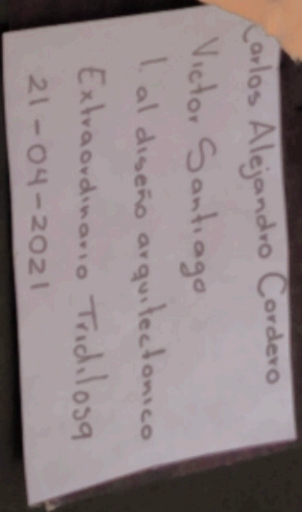 Carlos Alejandro Cordero
Victor Santiago
I. al diseño arquitectonico
Extraordinario Tridilosa
21-04-2021